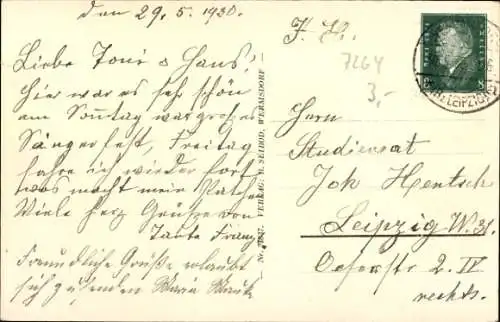 den 29. 5. 1930.
Liebe Toni & Hans!
Hier war es sehr schön
am Sonntag war großes
Sängerfest, Freitag
fahre ich wieder fort
was macht mein
Viele herz Grüsse von
Tante
Freundliche Grüße erlaubt
sich zu senden
Nr. VERLAG: H. SEIBOD, WERMSDORF
F. H.
7264
3,-
Herrn
Studienrat
Joh Hentsch
Leipzig W. 31.
2. IV
rechts.
LEIPZIG